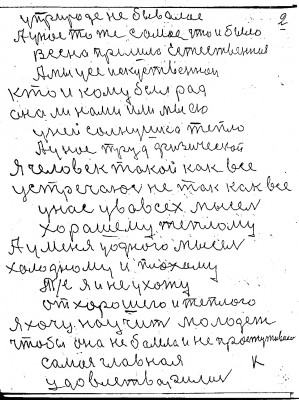 2
у природе не бывалае
А у нас то же самое что и было
Весна пришла естественная
А мы уе искуственной
кто и кому был рад
она ли нами или мы ею
у ней солнушка тепло
А у нас труд физической
Я человек такой как все
устречаюс не так как все
у нас у вавсех мысел
хорашему теплому
А у меня уодного мысел
халодному и плохаму
Т/к я и не ухожу
от хорошего и теплого
я хочу научит молодеж
чтоби она не балела и не простуживал
самая главная К
удовлетварили